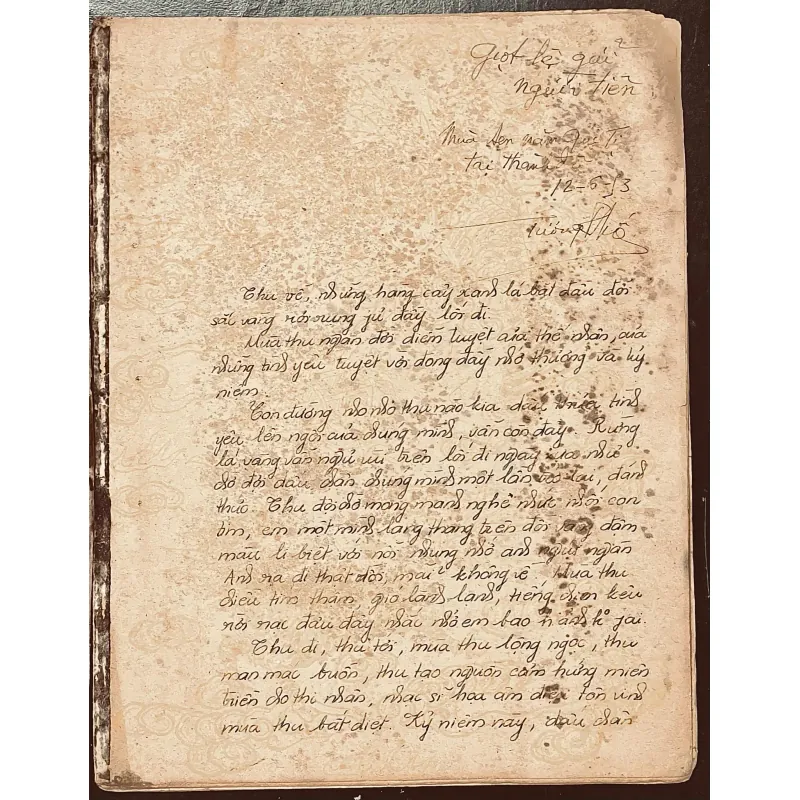 Giọt lệ gửi
người tiễn
Mùa sen năm Quý Tỵ
tại thành
12-6-13
Tương Phố
Thu về, những hàng cây xanh lá bắt đầu đổi
sắc vàng rơi rụng phủ đầy lối đi.
Mùa thu ngàn đời diễm tuyệt của thế nhân, của
những tình yêu tuyệt vời đong đầy nhớ thương và kỷ
niệm.
Con đường nho nhỏ thu nào kia dấu chứa tình
yêu lên ngôi của chúng mình, vẫn còn đây. Rừng
lá vàng vẫn ngủ vùi trên lối đi ngày xưa như
chờ đợi dấu chân chúng mình một lần trở lại, đánh
thức. Thu đợi chờ mong manh nghe nhức nhối con
tim, em một mình lang thang trên đồi vàng đẫm
màu li biệt với nỗi nhung nhớ anh ngút ngàn
Anh ra đi thật rồi, mãi không về. Mùa thu
chiều tím thẫm, gió lành lạnh, tiếng chim kêu
rời rạc đâu đây nhắc nhớ em bao h ảnh tì jai.
Thu đi, thu tới, mùa thu lộng ngọc, thu
man mác buồn, thu tạo nguồn cảm hứng miên
triền cho thi nhân, nhạc sĩ họa âm điệu tôn vinh
mùa thu bất diệt. Kỷ niệm này, dấu chân